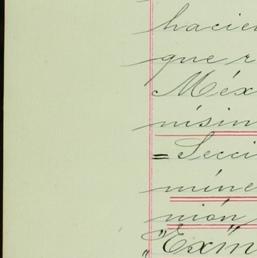 hacien
que r
Méx
nisin
= Secci
mine
nión,
"Exm